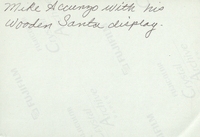 Mike Accurzo with his
Wooden Santa display.